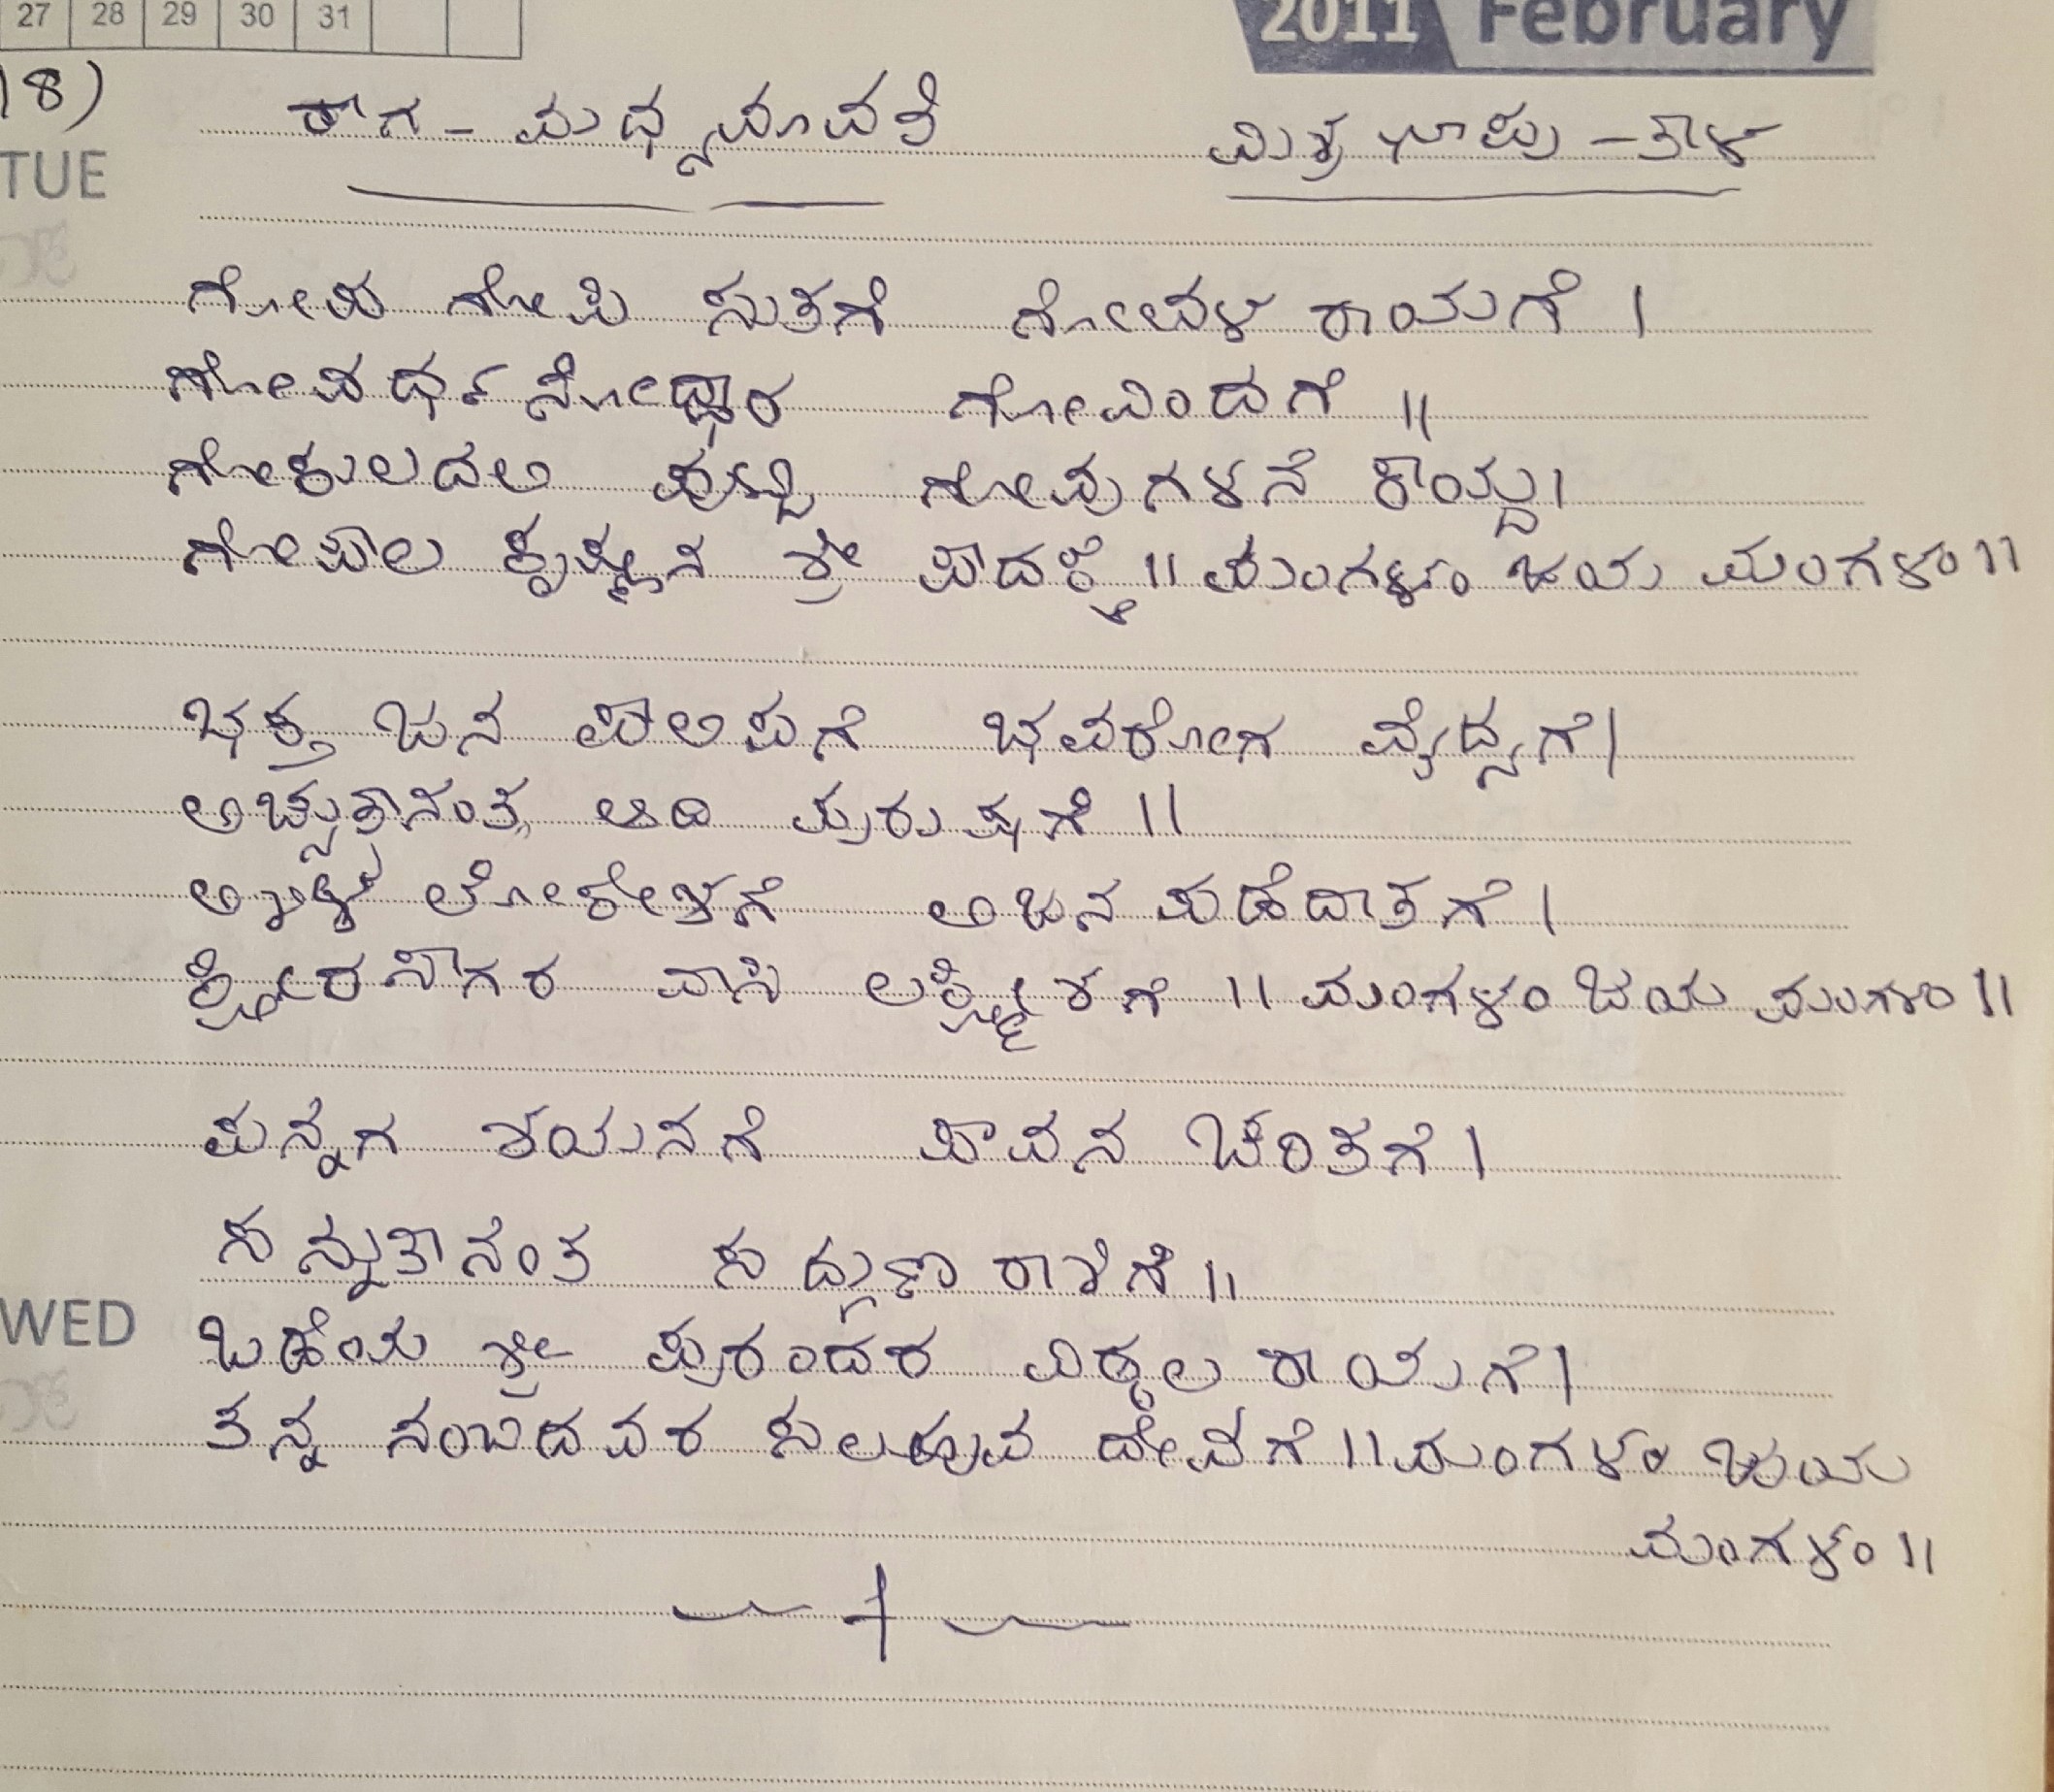 27 28 29 30 31
2011 February
18)
ರಾಗ - ಮಧ್ಯಮಾವತಿ ಮಿಶ್ರ ಛಾಪು - ತಾಳ
TUE
ಗೋಪ ಗೋಪಿ ಸುತಗೆ ಗೋವಳ ರಾಯಗೆ ।
ಗೋವರ್ಧನೋದ್ಧಾರ ಗೋವಿಂದಗೆ ॥
ಗೋಕುಲದಲಿ ಪುಟ್ಟಿ ಗೋವುಗಳನೆ ಕಾಯ್ದ।
ಗೋಪಾಲ ಕೃಷ್ಣನ ಶ್ರೀ ಪಾದಕ್ಕೆ ॥ ಮಂಗಳಂ ಜಯ ಮಂಗಳಂ॥
ಭಕ್ತ ಜನ ಪಾಲಿಪಗೆ ಭವರೋಗ ವೈದ್ಯಗೆ।
ಅಚ್ಯುತಾನಂತ ಆದಿ ಪುರುಷಗೆ ॥
ಲೋಕೇಶಗೆ ಅಜನ ಪಡೆದಾತಗೆ।
ಕ್ಷೀರಸಾಗರ ವಾಸಿ ಲಕ್ಷ್ಮೀಶಗೆ ॥ ಮಂಗಳಂ ಜಯ ಮಂಗಳಂ ॥
ಪನ್ನಗ ಶಯನಗೆ ಪಾವನ ಚರಿತಗೆ।
ಸನ್ನುತಾನಂತ ಸದ್ಗುಣ ರಾಶಿಗೆ॥
WED
ಒಡೆಯ ಶ್ರೀ ಪುರಂದರ ವಿಠ್ಠಲ ರಾಯಗೆ।
ತನ್ನ ನಂಬಿದವರ ಸಲಹುವ ದೇವಗೆ ॥ ಮಂಗಳಂ ಜಯ
ಮಂಗಳಂ ॥